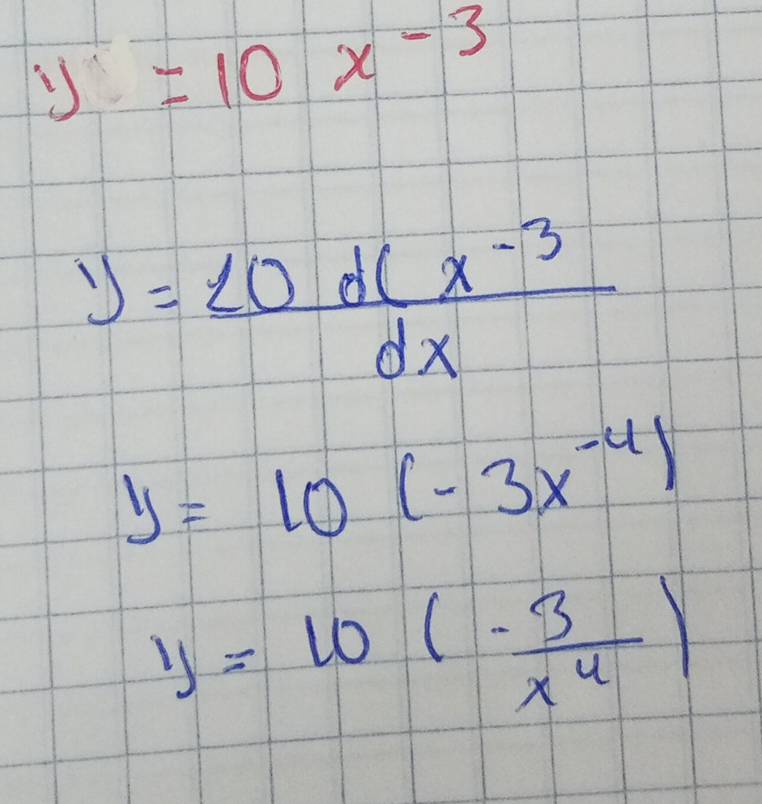 y = 10 x^-3
y = 10 d( x^-3 / dx
y = 10 (-3x^-4)
y = 10 ( -3 / x^4 )